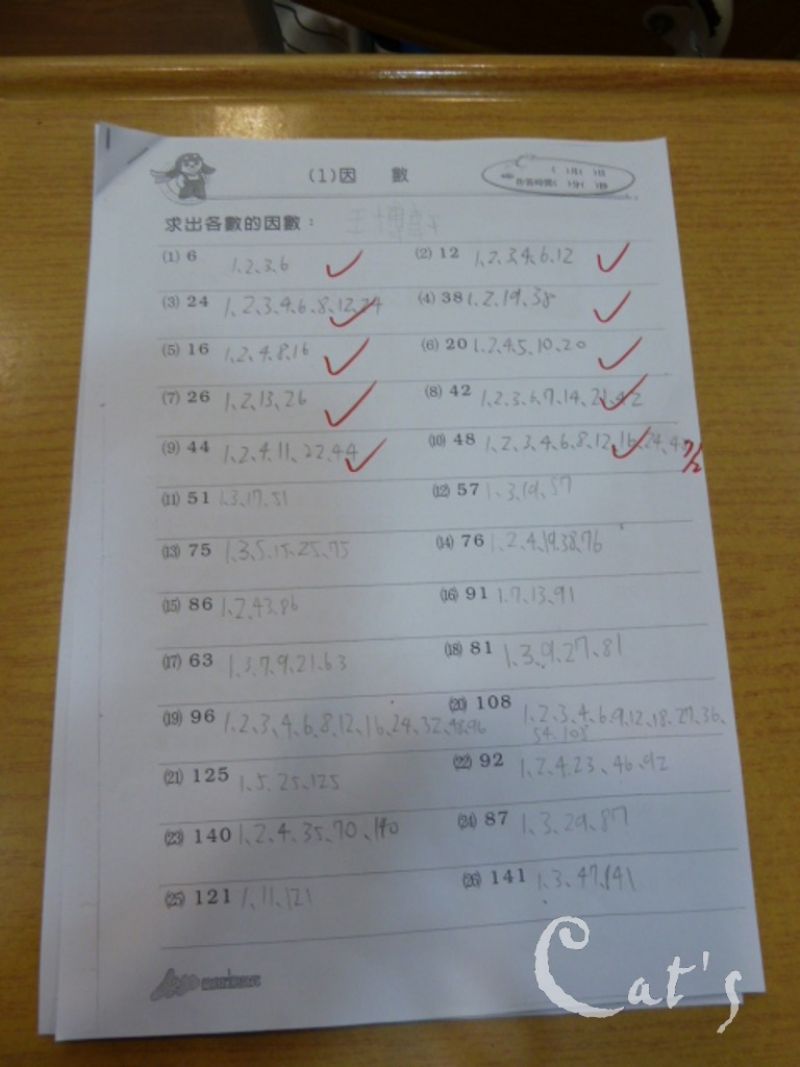 (1)因 數
( )月( )日
作答時間( )分( )秒
求出各數的因數：
(1) 6 1、2、3、6 (2) 12 1、2、3、4、6、12
(3) 24 1、2、3、4、6、8、12、24 (4) 38 1、2、19、38
(5) 16 1、2、4、8、16 (6) 20 1、2、4、5、10、20
(7) 26 1、2、13、26 (8) 42 1、2、3、6、7、14、21、42
(9) 44 1、2、4、11、22、44 (10) 48 1、2、3、4、6、8、12、16、24、48
7/2
(11) 51 1、3、17、51 (12) 57 1、3、19、57
(13) 75 1、3、5、15、25、75 (14) 76 1、2、4、19、38、76
(15) 86 1、2、43、86 (16) 91 1、7、13、91
(17) 63 1、3、7、9、21、63 (18) 81 1、3、9、27、81
(19) 96 1、2、3、4、6、8、12、16、24、32、48、96 (20) 108 1、2、3、4、6、9、12、18、27、36、
54、108
(21) 125 1、5、25、125 (22) 92 1、2、4、23、46、92
(23) 140 1、2、4、35、70、140 (24) 87 1、3、29、87
(25) 121 1、11、121 (26) 141 1、3、47、141
Cat's